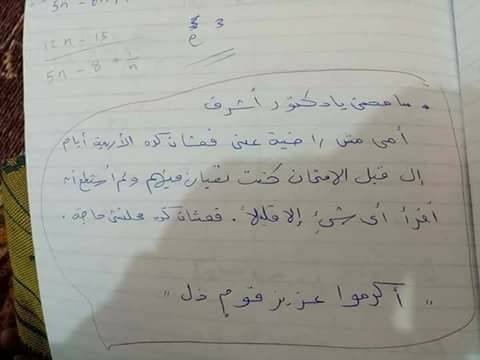 12n - 15
5n - 8 + 1/n
3
. سامحنى يا دكتور أشرف
أمى مش راضية عنى فعشان كده الأربعة أيام
إلى قبل الامتحان كنت تعبان فيهم ولم أستطع أن
أقرأ أى شئ إلا قليلاً. فعشان كده محلتش حاجة.
" أكرموا عزيز قوم ذل "